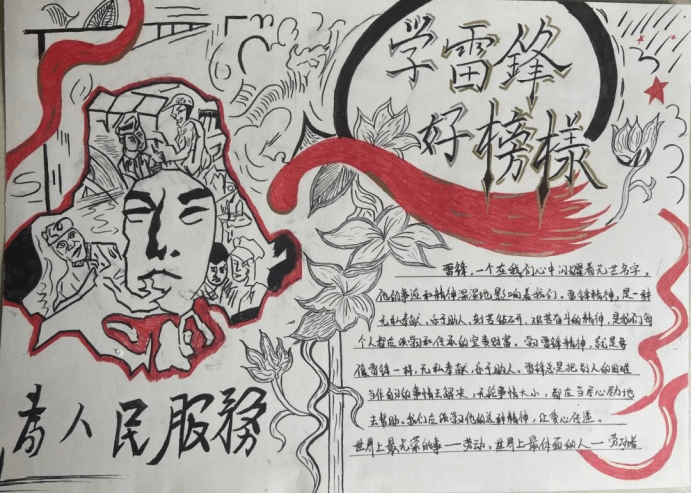 学雷鋒
好榜樣
雷锋，一个在我们心中闪耀着光芒名字，
他的事迹和精神深深地影响着我们，雷锋精神，是一种
无私奉献、乐于助人、刻苦钻研、艰苦奋斗的精神，是我们每
个人都应该学习和传承的宝贵财富。学习雷锋精神，就是要
像雷锋一样，无私奉献，乐于助人。雷锋总是把别人的困难
当作自己的事情去解决，无论事情大小，都在当尽心尽力地
去帮助。我们应该学习他的这种精神，让爱心传递。
世界上最光荣的事——劳动。世界上最体面的人——劳动者
為人民服務